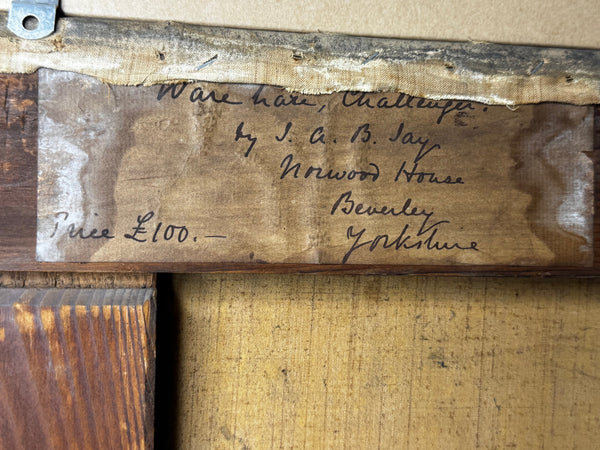 Ware hare, Challenger.
by J. A. B. Jay
Norwood House
Beverley
Yorkshire
Price £100.—